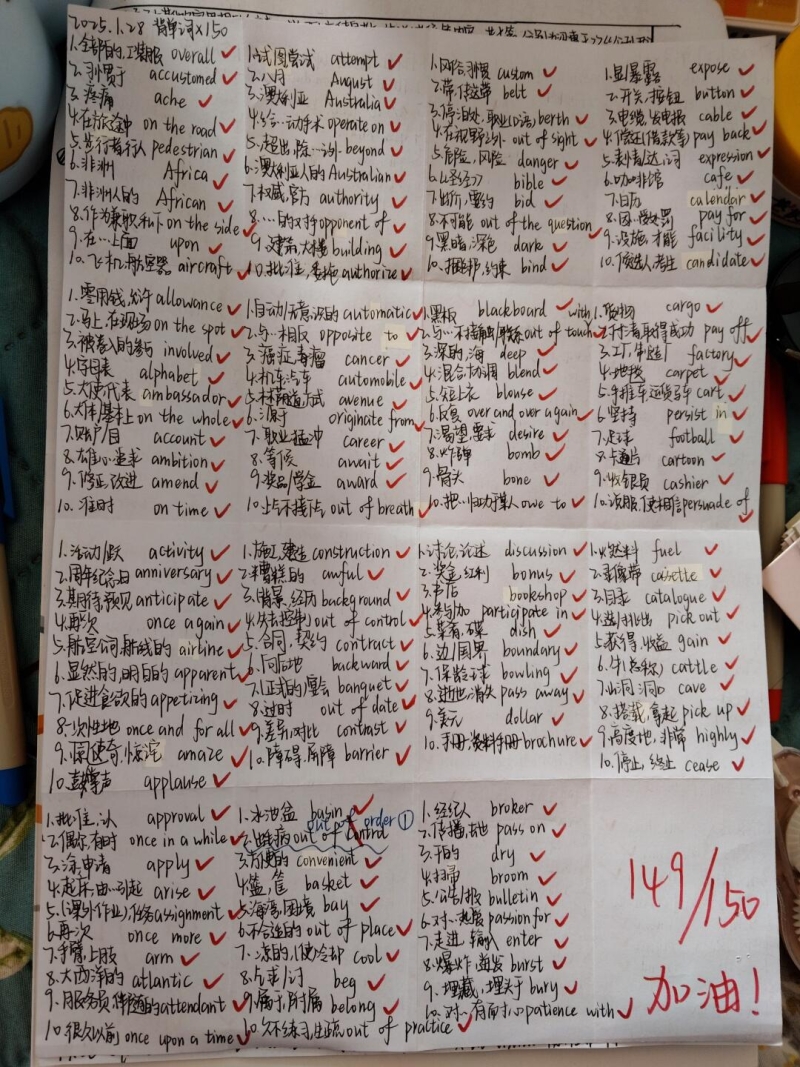 2025.1.28 背单词×150
1.全部的,工装服 overall
2.习惯于 accustomed
3.疼痛 ache
4.在旅途中 on the road
5.步行者行人 pedestrian
6.非洲 Africa
7.非洲人的 African
8.作为兼职私下 on the side
9.在…上面 upon
10.飞机,航空器 aircraft
1.试图尝试 attempt
2.八月 August
3.澳大利亚 Australia
4.给…动手术 operate on
5.超出,除…之外 beyond
6.澳大利亚人的 Australian
7.权威,官方 authority
8.…的对手 opponent of
9.建筑,大楼 building
10.批准,委托 authorize
1.风俗,习惯 custom
2.带,传送带 belt
3.停泊处,职业(口语) berth
4.在视野之外 out of sight
5.危险,风险 danger
6.《圣经》 bible
7.出价,要约 bid
8.不可能 out of the question
9.黑暗,深色 dark
10.捆绑,约束 bind
1.显/暴露 expose
2.开关,按钮 button
3.电缆,发电报 cable
4.偿还(借款等) pay back
5.表情,表达,词 expression
6.咖啡馆 cafe
7.日历 calendar
8.因…受处罚 pay for
9.设施,才能 facility
10.候选人,考生 candidate
1.零用钱,允许 allowance
2.马上,在现场 on the spot
3.被卷入的,参与 involved
4.字母表 alphabet
5.大使,代表 ambassador
6.大体/基本上 on the whole
7.账户/目 account
8.雄心,追求 ambition
9.修正,改进 amend
10.准时 on time
1.自动/无意识的 automatic
2.与…相反 opposite to
3.癌症,毒瘤 cancer
4.机车汽车 automobile
5.林荫道,方式 avenue
6.源于 originate from
7.职业,猛冲 career
8.等候 await
9.奖品/学金 award
10.上气不接下气 out of breath
1.黑板 blackboard
2.与…不接触/联系 out of touch with
3.深的,海 deep
4.混合,协调 blend
5.短上衣 blouse
6.反复 over and over again
7.渴望,要求 desire
8.炸弹 bomb
9.骨头 bone
10.把…归功于某人 owe to
1.货物 cargo
2.付清取得成功 pay off
3.工厂,制造厂 factory
4.地毯 carpet
5.手推车,运货马车 cart
6.坚持 persist in
7.足球 football
8.卡通片 cartoon
9.收银员 cashier
10.说服,使相信 persuade of
1.活动/跃 activity
2.周年纪念日 anniversary
3.期待,预见 anticipate
4.再次 once again
5.航空公司,航线的 airline
6.显然的,明白的 apparent
7.促进食欲的 appetizing
8.一次性地 once and for all
9.使惊奇,惊诧 amaze
10.鼓掌声 applause
1.施工,建造 construction
2.糟糕的 awful
3.背景,经历 background
4.失去控制) out of control
5.合同,契约 contract
6.向后地 backward
7.(正式的)宴会 banquet
8.过时 out of date
9.差异,对比 contrast
10.障碍,屏障 barrier
1.讨论,论述 discussion
2.奖金,红利 bonus
3.书店 bookshop
4.参加 participate in
5.菜肴,碟 dish
6.边/国界 boundary
7.保龄球 bowling
8.逝世,消失 pass away
9.美元 dollar
10.手册,资料手册 brochure
1.燃料 fuel
2.录像带 cassette
3.目录 catalogue
4.选/挑出 pick out
5.获得,收益 gain
6.牛(总称) cattle
7.山洞,洞口 cave
8.搭载,拿起 pick up
9.高度地,非常 highly
10.停止,终止 cease
1.批准,认 approval
2.偶尔,有时 once in a while
3.涂,申请 apply
4.起床,由…引起 arise
5.(课外作业),任务 assignment
6.再次 once more
7.手臂,上肢 arm
8.大西洋的 atlantic
9.服务员,伴随的 attendant
10.很久以前 once upon a time
1.水池盆 basin
out of order ①
2.出毛病 out of control
3.方便的 convenient
4.篮,筐 basket
5.海湾,困境 bay
6.不合适的 out of place
7.凉的,使冷却 cool
8.乞求/讨 beg
9.属于,附属 belong
10.欠缺练习,生疏 out of practice
1.经纪人 broker
2.传播,去世 pass on
3.干的 dry
4.扫帚 broom
5.公告/报 bulletin
6.对…热爱 passion for
7.走进,输入 enter
8.爆炸,迸发 burst
9.埋藏,埋头于 bury
10.对…有耐心 patience with
149/150
加油!